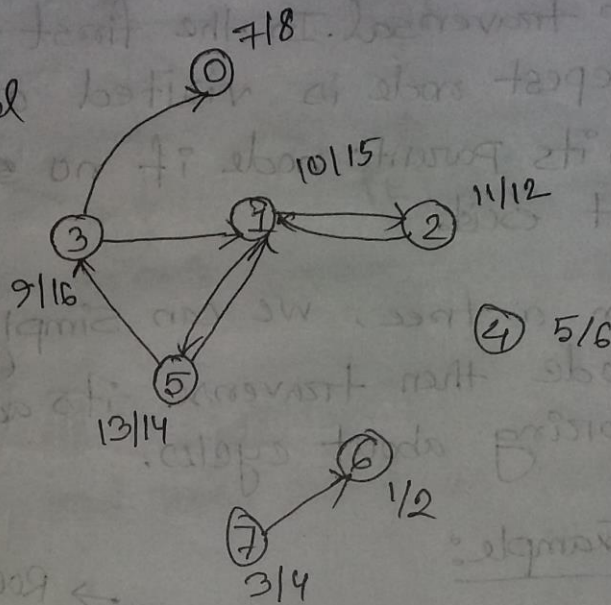 7/8
0
10/15
11/12
3
1
2
9/16
4 5/6
5
13/14
6
1/2
7
3/4